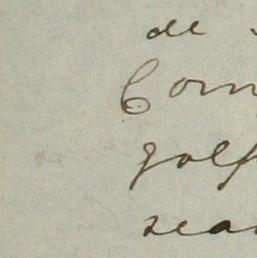 de
Com
golf
sea